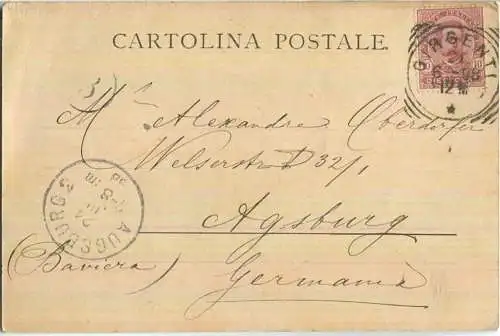 CARTOLINA POSTALE.
GIRGENTI
12 M
Alexandre Oberdorfer
Welserstr D 32/1
Agsburg
(Baviera)
Germania
AUGSBURG 2